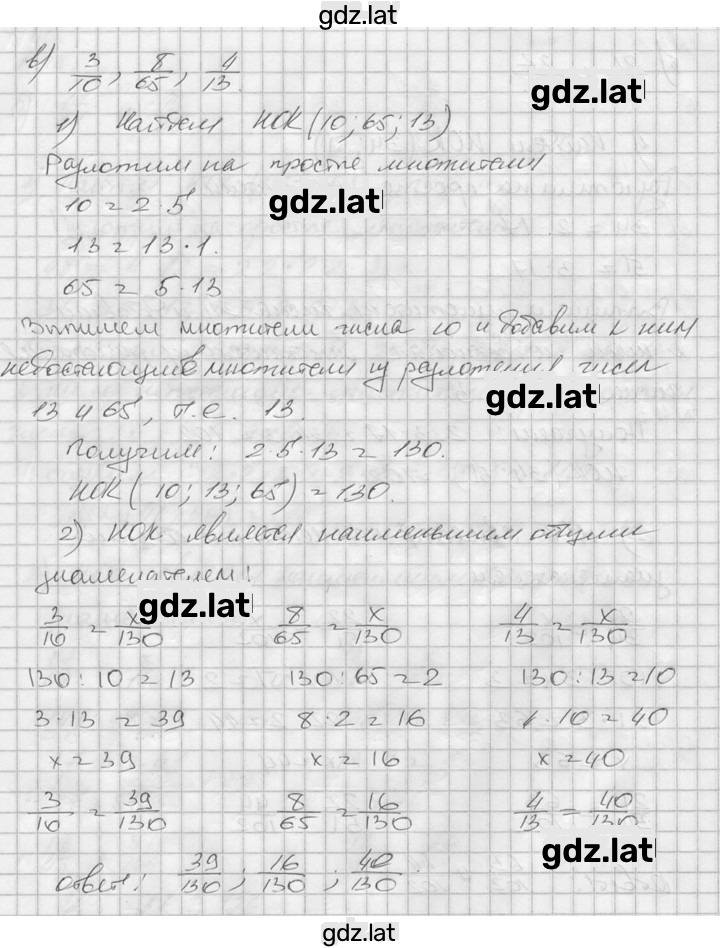 gdz.lat
в) 3/10, 8/65, 4/13.
gdz.lat
1) Найдем НОК(10; 65; 13)
Разложим на простые множители
10 = 2·5
gdz.lat
13 = 13·1.
65 = 5·13
Выпишем множители числа 10 и добавим к ним
недостающие множители из разложения чисел
gdz.lat
13 и 65, т.е. 13.
Получим: 2·5·13 = 130.
НОК(10; 13; 65) = 130.
2) НОК является наименьшим общим
знаменателем!
gdz.lat
3/10 = x/130 8/65 = x/130 4/13 = x/130
130:10 = 13 130:65 = 2 130:13 = 10
3·13 = 39 8·2 = 16 4·10 = 40
x = 39 x = 16 x = 40
3/10 = 39/130 8/65 = 16/130 4/13 = 40/130
gdz.lat
ответ: 39/130; 16/130; 40/130.
gdz.lat